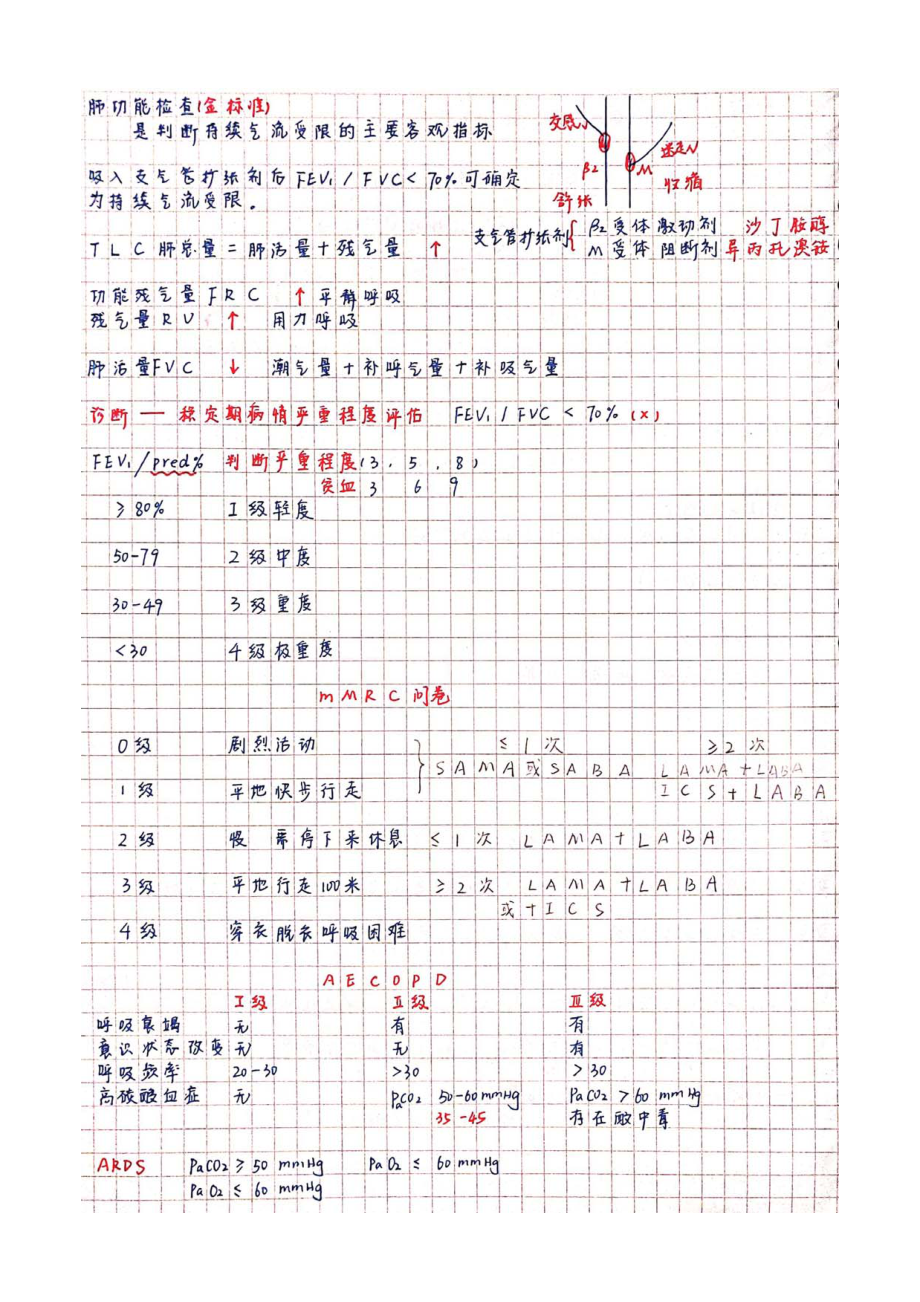 肺功能检查(金标准)
是判断持续气流受限的主要客观指标
交感N
β2
舒张
迷走N
M
收缩
吸入支气管扩张剂后FEV₁/FVC<70%可确定
为持续气流受限。
支气管扩张剂{β2受体激动剂 沙丁胺醇
M受体阻断剂 异丙托溴铵
TLC肺总量=肺活量+残气量 ↑
功能残气量FRC ↑平静呼吸
残气量RV ↑ 用力呼吸
肺活量FVC ↓ 潮气量+补呼气量+补吸气量
诊断一稳定期病情严重程度评估 FEV₁/FVC<70%(×)
FEV₁/pred% 判断严重程度(3.5.8)
贫血 3 6 9
≥80% I级轻度
50-79 2级中度
30-49 3级重度
<30 4级极重度
mMRC问卷
0级 剧烈活动 ≤1次 ≥2次
SAMA或SABA LAMA+LABA
1级 平地快步行走 ICS+LABA
2级 慢 需停下来休息 ≤1次 LAMA+LABA
3级 平地行走100米 ≥2次 LAMA+LABA
或+ICS
4级 穿衣脱衣呼吸困难
AECOPD
I级 Ⅱ级 Ⅲ级
呼吸衰竭 无 有 有
意识状态改变 无 无 有
呼吸频率 20-30 >30 >30
高碳酸血症 无 PaCO2 50-60mmHg PaCO2>60mmHg
35-45 存在酸中毒
ARDS PaCO2≥50mmHg PaO2≤60mmHg
PaO2≤60mmHg